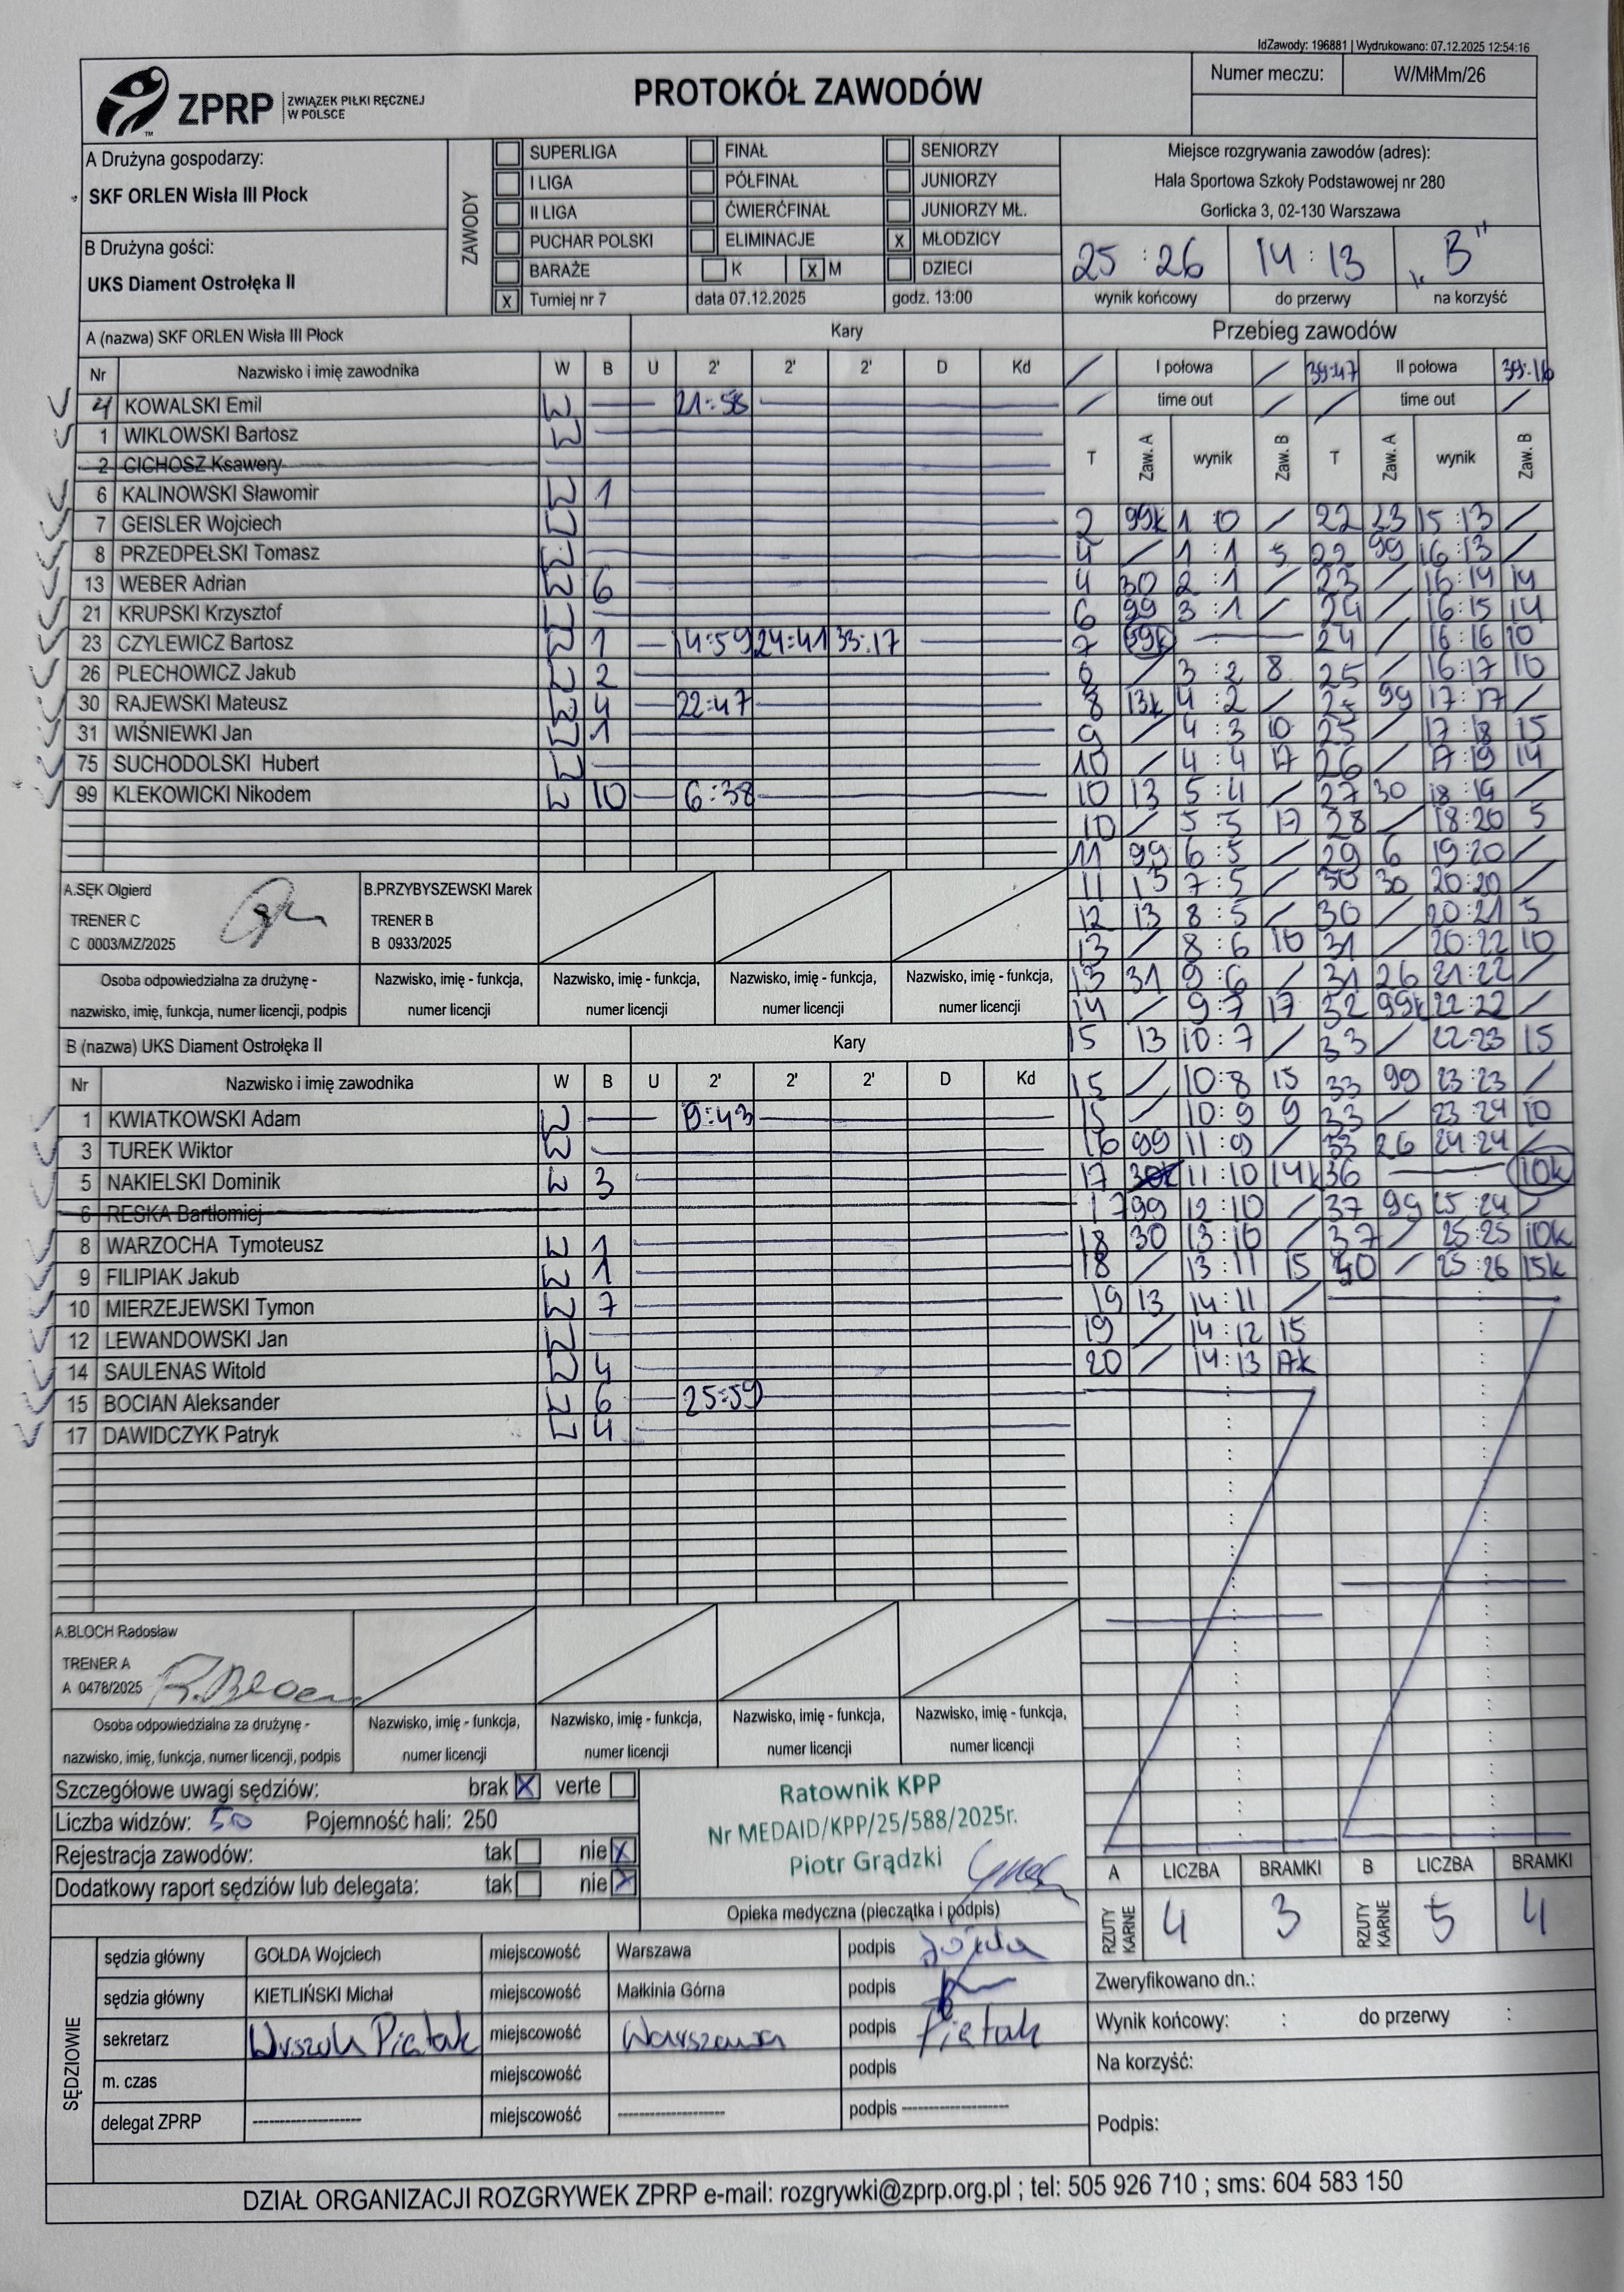 IdZawody: 196881 | Wydrukowano: 07.12.2025 12:54:16
ZPRP ZWIĄZEK PIŁKI RĘCZNEJ W POLSCE
PROTOKÓŁ ZAWODÓW
Numer meczu: W/MłMm/26
A Drużyna gospodarzy:
SKF ORLEN Wisła III Płock
B Drużyna gości:
UKS Diament Ostrołęka II
ZAWODY
SUPERLIGA FINAŁ SENIORZY
I LIGA PÓŁFINAŁ JUNIORZY
II LIGA ĆWIERĆFINAŁ JUNIORZY MŁ.
PUCHAR POLSKI ELIMINACJE X MŁODZICY
BARAŻE K X M DZIECI
X Turniej nr 7 data 07.12.2025 godz. 13:00
Miejsce rozgrywania zawodów (adres):
Hala Sportowa Szkoły Podstawowej nr 280
Gorlicka 3, 02-130 Warszawa
25 : 26 14 : 13 „B"
wynik końcowy do przerwy na korzyść
A (nazwa) SKF ORLEN Wisła III Płock Kary
Nr Nazwisko i imię zawodnika W B U 2' 2' 2' D Kd
4 KOWALSKI Emil W 21:58
1 WIKLOWSKI Bartosz W
2 CICHOSZ Ksawery
6 KALINOWSKI Sławomir W 1
7 GEISLER Wojciech W
8 PRZEDPEŁSKI Tomasz W
13 WEBER Adrian W 6
21 KRUPSKI Krzysztof W
23 CZYLEWICZ Bartosz W 1 14:59 24:41 33:17
26 PLECHOWICZ Jakub W 2
30 RAJEWSKI Mateusz W 4 22:47
31 WIŚNIEWKI Jan W 1
75 SUCHODOLSKI Hubert W
99 KLEKOWICKI Nikodem W 10 6:38
A.SĘK Olgierd
TRENER C
C 0003/MZ/2025
B.PRZYBYSZEWSKI Marek
TRENER B
B 0933/2025
Osoba odpowiedzialna za drużynę -
nazwisko, imię, funkcja, numer licencji, podpis
Nazwisko, imię - funkcja, numer licencji
Nazwisko, imię - funkcja, numer licencji
Nazwisko, imię - funkcja, numer licencji
Nazwisko, imię - funkcja, numer licencji
B (nazwa) UKS Diament Ostrołęka II Kary
Nr Nazwisko i imię zawodnika W B U 2' 2' 2' D Kd
1 KWIATKOWSKI Adam W 9:43
3 TUREK Wiktor W
5 NAKIELSKI Dominik W 3
6 RESKA Bartłomiej
8 WARZOCHA Tymoteusz W 1
9 FILIPIAK Jakub W 1
10 MIERZEJEWSKI Tymon W 7
12 LEWANDOWSKI Jan W
14 SAULENAS Witold W 4
15 BOCIAN Aleksander W 6 25:59
17 DAWIDCZYK Patryk W 4
A.BLOCH Radosław
TRENER A
A 0478/2025 R.Bloch
Osoba odpowiedzialna za drużynę -
nazwisko, imię, funkcja, numer licencji, podpis
Nazwisko, imię - funkcja, numer licencji
Nazwisko, imię - funkcja, numer licencji
Nazwisko, imię - funkcja, numer licencji
Nazwisko, imię - funkcja, numer licencji
Przebieg zawodów
/ I połowa / 39:47 II połowa 39:16
/ time out / / time out /
T Zaw. A wynik Zaw. B T Zaw. A wynik Zaw. B
2 99k 1 : 0 / 22 23 15:13 /
4 / 1 : 1 5 22 99 16:13 /
4 30 2 : 1 / 23 / 16:14 14
6 99 3 : 1 / 24 / 16:15 14
7 99k 24 / 16:16 10
8 / 3 : 2 8 25 / 16:17 10
8 13k 4 : 2 / 25 99 17:17 /
9 / 4 : 3 10 25 / 17:18 15
10 / 4 : 4 17 26 / 17:19 14
10 13 5 : 4 / 27 30 18:19 /
10 / 5 : 5 17 28 / 18:20 5
11 99 6 : 5 / 29 6 19:20 /
11 13 7 : 5 / 30 30 20:20 /
12 13 8 : 5 / 30 / 20:21 5
13 / 8 : 6 10 31 / 20:22 10
13 31 9 : 6 / 31 26 21:22 /
14 / 9 : 7 17 32 99k 22:22 /
15 13 10 : 7 / 33 / 22:23 15
15 / 10:8 15 33 99 23:23 /
15 / 10:9 9 33 / 23:24 10
16 99 11:9 / 33 26 24:24 /
17 11:10 14k 36 10k
17 99 12:10 / 37 99 25:24 /
18 30 13:10 / 37 / 25:25 10k
18 / 13:11 15 40 / 25:26 15k
19 13 14:11 /
19 / 14:12 15
20 / 14:13 17k
Szczegółowe uwagi sędziów: brak X verte
Liczba widzów: 50 Pojemność hali: 250
Rejestracja zawodów: tak nie X
Dodatkowy raport sędziów lub delegata: tak nie X
Ratownik KPP
Nr MEDAID/KPP/25/588/2025r.
Piotr Grądzki
Opieka medyczna (pieczątka i podpis)
A LICZBA BRAMKI B LICZBA BRAMKI
RZUTY KARNE 4 3 RZUTY KARNE 5 4
SĘDZIOWIE
sędzia główny GOŁDA Wojciech miejscowość Warszawa podpis Gołda
sędzia główny KIETLIŃSKI Michał miejscowość Małkinia Górna podpis
sekretarz Piętak miejscowość Warszawa podpis Piętak
m. czas miejscowość podpis
delegat ZPRP -------------------- miejscowość -------------------- podpis --------------------
Zweryfikowano dn.:
Wynik końcowy: : do przerwy :
Na korzyść:
Podpis:
DZIAŁ ORGANIZACJI ROZGRYWEK ZPRP e-mail: rozgrywki@zprp.org.pl ; tel: 505 926 710 ; sms: 604 583 150